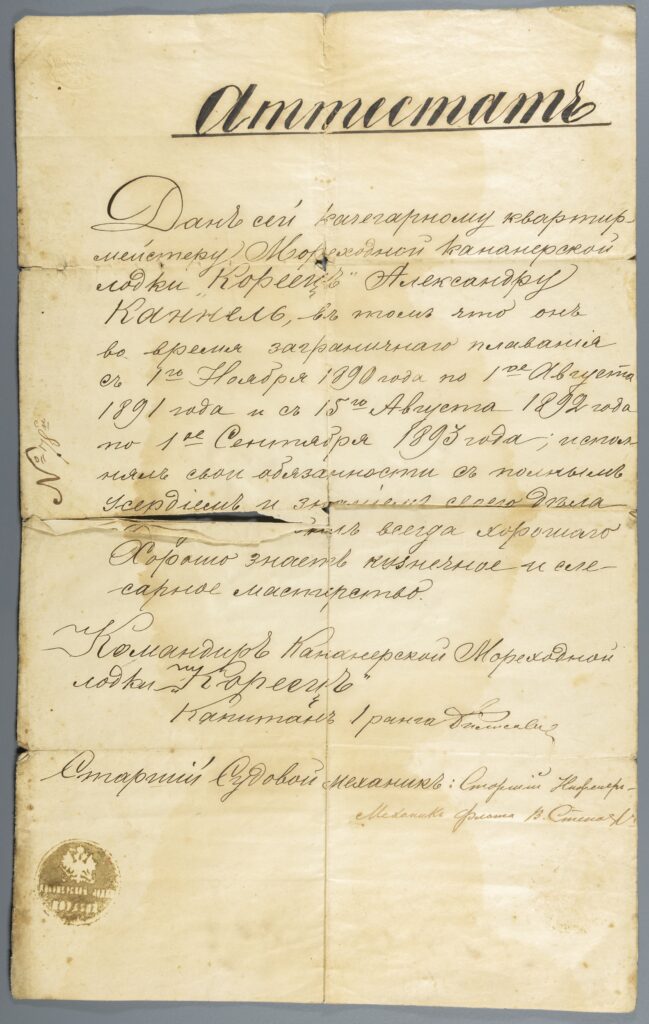 Аттестатъ
Данъ сей качегарному квартир-
мейстеру, Мореходной Кананерской
лодки "Кореецъ" Александру
Каннель, въ томъ что онъ
во время заграничнаго плаванія
съ 1го Ноября 1890 года по 1ое Августа
1891 года и съ 15го Августа 1892 года
по 1ое Сентября 1893 года; испол-
нялъ свои обязанности съ полнымъ
усердіемъ и знаніемъ своего дѣла
всегда хорошаго
Хорошо знаетъ кузнечное и сле-
сарное мастерство.
Командиръ Кананерской Мореходной
лодки "Кореецъ"
Капитанъ 1 ранга
Старшій Судовой механикъ: Старшій Инженеръ-
Механикъ флота В.
№
КАНОНЕРСКОЙ ЛОДКИ
КОРЕЕЦЪ